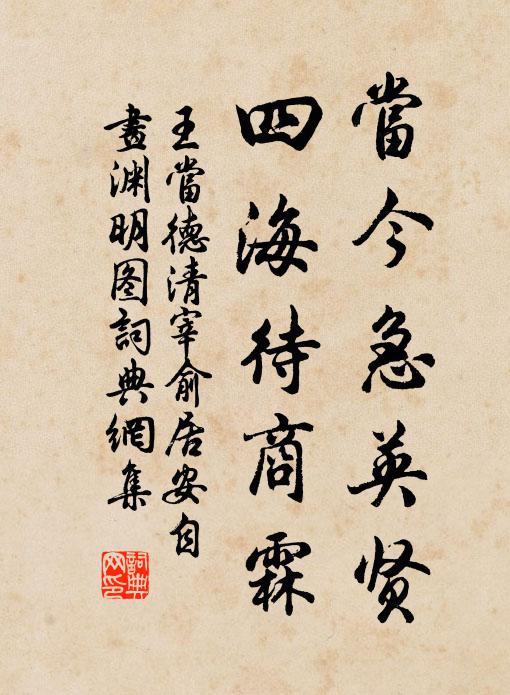 當今急英贤
四海待商霖
王當德清宰俞居安自
畫渊明图詞典網集
詞典网印